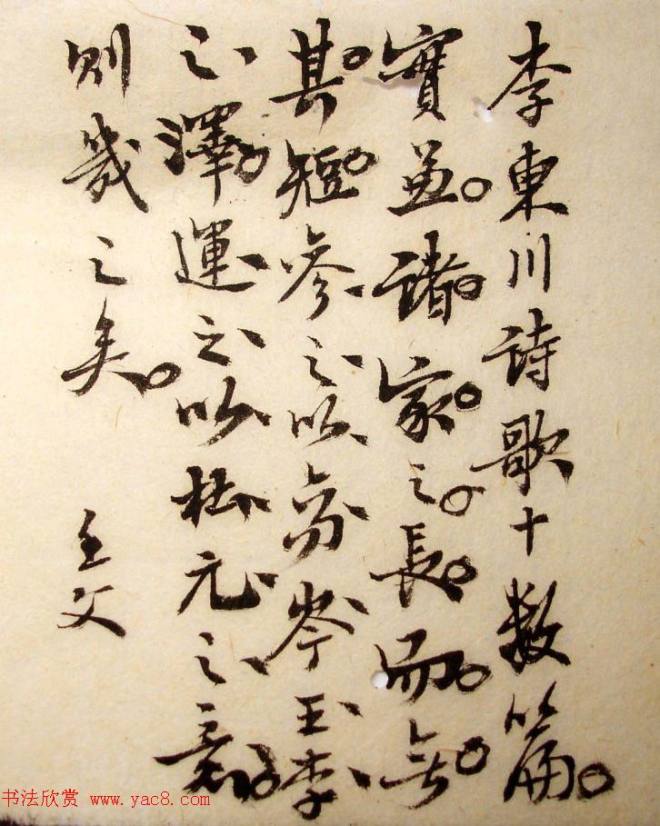 李東川詩歌十數篇
實兼諸家之長而無
其短參之以高岑王李
之澤運之以杜元之意
則幾之矣
全文
书法欣赏 www.yac8.com